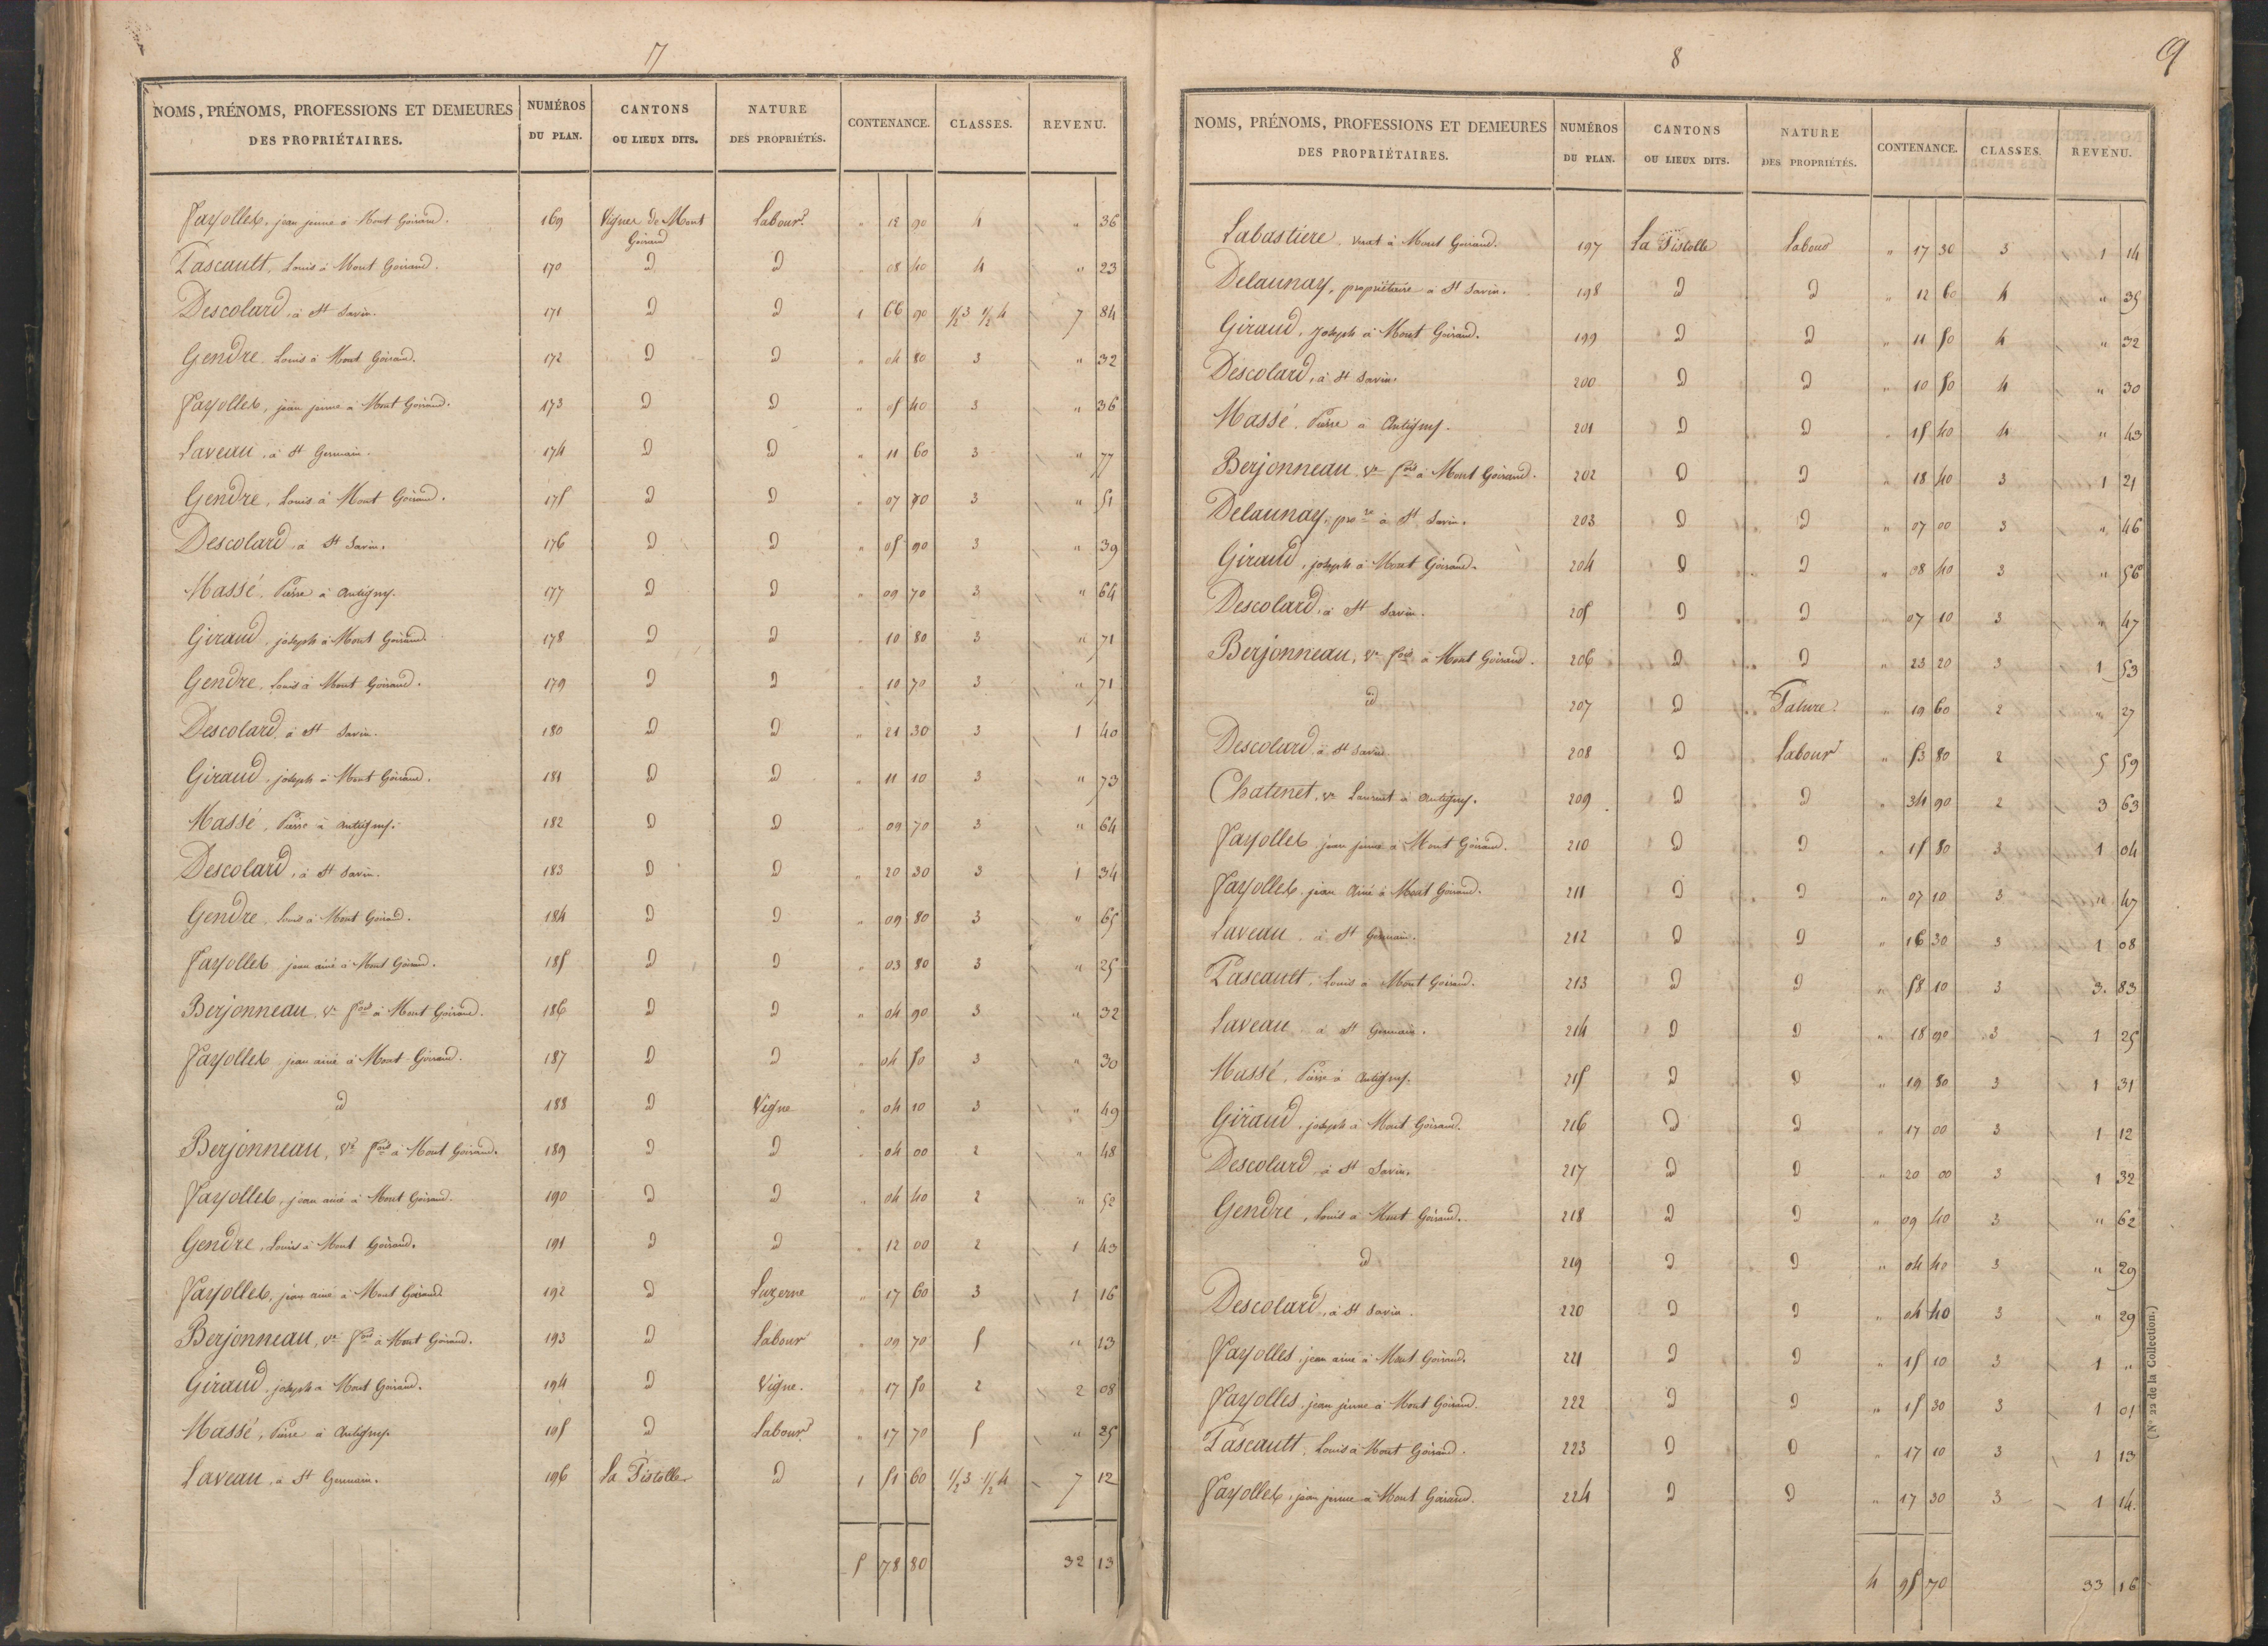 7
NOMS, PRÉNOMS, PROFESSIONS ET DEMEURES DES PROPRIÉTAIRES. NUMÉROS DU PLAN. CANTONS OU LIEUX DITS. NATURE DES PROPRIÉTÉS. CONTENANCE. CLASSES. REVENU.
Fayolles, jean jeune à Mont Goirand. 169 Vignes de Mont Goirand Labour " 12 90 4 " 36
Pascault, Louis à Mont Goirand. 170 D D " 08 40 4 " 23
Descolard, à St Savin. 171 D D 1 66 90 1/2 3 1/2 4 7 84
Gendre Louis à Mont Goirand. 172 D D " 04 80 3 " 32
Fayolles, jean jeune à Mont Goirand. 173 D D " 05 40 3 " 36
Laveau, à St Germain. 174 D D " 11 60 3 " 77
Gendre, Louis à Mont Goirand. 175 D D " 07 70 3 " 51
Descolard à St Savin. 176 D D " 05 90 3 " 39
Massé, Pierre à Antigny. 177 D D " 09 70 3 " 64
Giraud, joseph à Mont Goirand. 178 D D " 10 80 3 " 71
Gendre, Louis à Mont Goirand. 179 D D " 10 70 3 " 71
Descolard, à St Savin. 180 D D " 21 30 3 1 40
Giraud, joseph à Mont Goirand. 181 D D " 11 10 3 " 73
Massé, Pierre à Antigny. 182 D D " 09 70 3 " 64
Descolard, à St Savin. 183 D D " 20 30 3 1 34
Gendre, Louis à Mont Goirand. 184 D D " 09 80 3 " 65
Fayolles, jean ainé à Mont Goirand. 185 D D " 03 80 3 " 25
Berjonneau, Ve fois à Mont Goirand. 186 D D " 04 90 3 " 32
Fayolles, jean ainé à Mont Goirand. 187 D D " 04 50 3 " 30
id 188 D Vigne " 04 10 3 " 49
Berjonneau, Ve fois à Mont Goirand. 189 D D " 04 00 2 " 48
Fayolles, jean ainé à Mont Goirand. 190 D D " 04 40 2 " 52
Gendre, Louis à Mont Goirand. 191 D D " 12 00 2 1 43
Fayolles, jean ainé à Mont Goirand. 192 D Luzerne " 17 60 3 1 16
Berjonneau, Ve fois à Mont Goirand. 193 D Labour " 09 70 5 " 13
Giraud, joseph à Mont Goirand. 194 D Vigne. " 17 50 2 2 08
Massé, Pierre à Antigny. 195 D Labour " 17 70 5 " 25
Laveau, à St Germain. 196 La Pistolle D 1 51 60 1/2 3 1/2 4 7 12
5 78 80 32 13
8
9
NOMS, PRÉNOMS, PROFESSIONS ET DEMEURES DES PROPRIÉTAIRES. NUMÉROS DU PLAN. CANTONS OU LIEUX DITS. NATURE DES PROPRIÉTÉS. CONTENANCE. CLASSES. REVENU.
Labastiere, à Mont Goirand. 197 La Pistolle Labour " 17 30 3 1 14
Delaunay, propriétaire à St Savin. 198 D D " 12 60 4 " 35
Giraud, Joseph à Mont Goirand. 199 D D " 11 50 4 " 32
Descolard, à St Savin. 200 D D " 10 50 4 " 30
Massé, Pierre à Antigny. 201 D D " 15 40 4 " 43
Berjonneau Ve fois à Mont Goirand. 202 D D " 18 40 3 1 21
Delaunay, pre à St Savin. 203 D D " 07 00 3 " 46
Giraud, joseph à Mont Goirand. 204 D D " 08 40 3 " 56
Descolard, à St Savin. 205 D D " 07 10 3 " 47
Berjonneau, Ve fois à Mont Goirand. 206 D D " 23 20 3 1 53
id 207 D Pature " 19 60 2 " 27
Descolard à St Savin 208 D Labour " 53 80 2 5 59
Chatenet, Ve Laurent à Antigny. 209 D D " 34 90 2 3 63
Fayolles, jean jeune à Mont Goirand. 210 D D " 15 80 3 1 04
Fayolles, jean Ainé à Mont Goirand. 211 D D " 07 10 3 " 47
Laveau, à St Germain. 212 D D " 16 30 3 1 08
Pascault, Louis à Mont Goirand. 213 D D " 58 10 3 3 83
Laveau, à St Germain. 214 D D " 18 90 3 1 25
Massé, Pierre à Antigny. 215 D D " 19 80 3 1 31
Giraud, joseph à Mont Goirand. 216 D D " 17 00 3 1 12
Descolard à St Savin. 217 D D " 20 00 3 1 32
Gendre, Louis à Mont Goirand. 218 D D " 09 40 3 " 62
id 219 D D " 04 40 3 " 29
Descolard, à St Savin. 220 D D " 04 40 3 " 29
Fayolles, jean ainé à Mont Goirand. 221 D D " 15 10 3 1 "
Fayolles, jean jeune à Mont Goirand. 222 D D " 15 30 3 1 01
Pascault, Louis à Mont Goirand. 223 D D " 17 10 3 1 13
Fayolles, jean jeune à Mont Goirand. 224 D D " 17 30 3 1 14.
4 95 70 33 16
(No 22 de la Collection.)